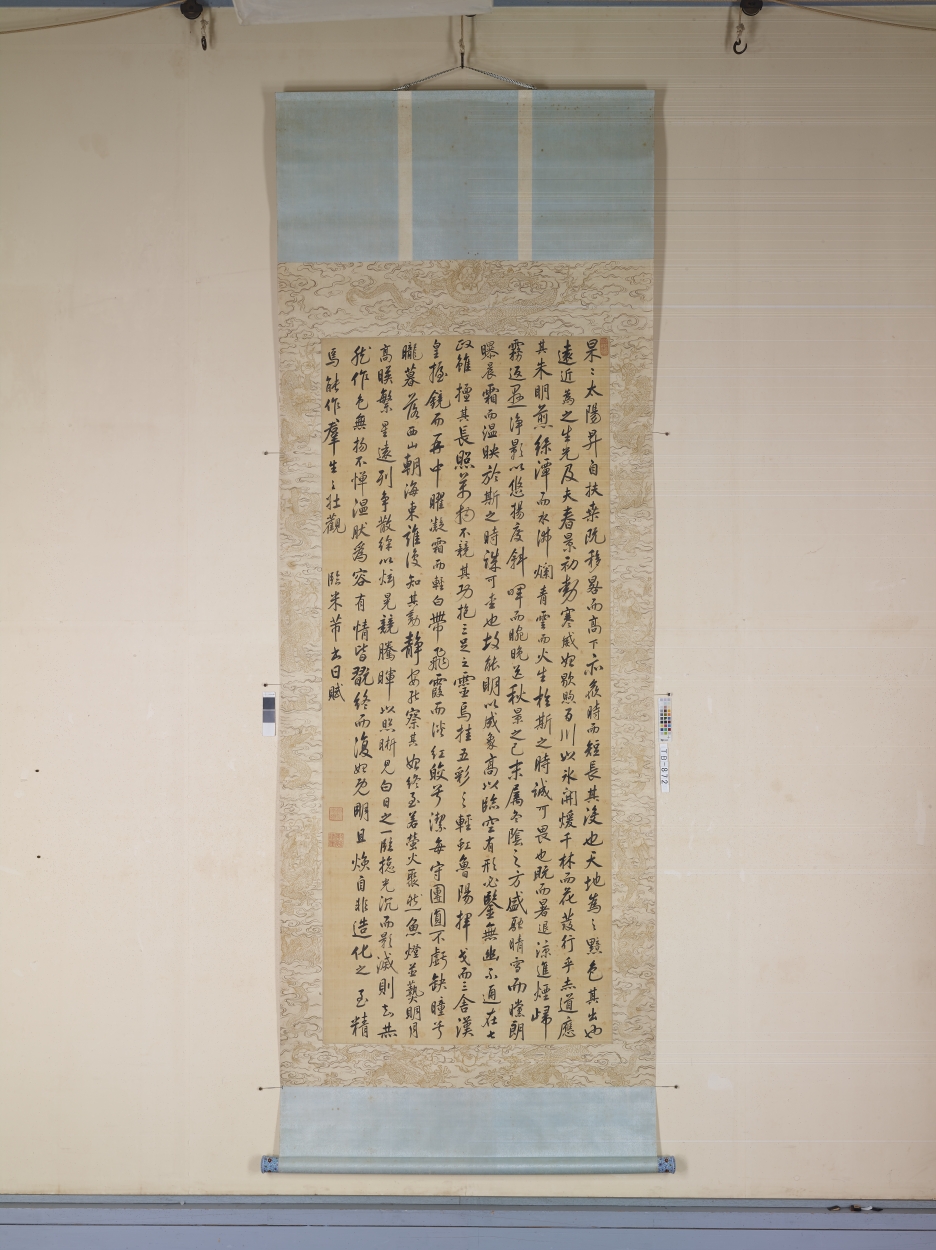 杲〻太陽昇自扶桑既移晷而高下亦候時而短長其沒也天地為之黯色其出也
遠近為之生光及夫春景初動寒威始歇照百川以氷開煖千林而花發行乎赤道應
其朱明煎綠潭而水沸爛青雲而火生於斯之時誠可畏也既而暑退涼進煙歸
霧返懸淨影以悠揚度斜暉而晼晚送秋景之已末屬冬陰之方盛耿晴雪而曭朗
曝晨霜而温映於斯之時誠可愛也故能明以成象高以臨空有形必鑒無幽不通在七
政雖擅其長照萬物不競其功抱三足之靈烏挂五彩之輕虹魯陽揮戈而三舍漢
皇握鏡而再中曜凝霜而轉白帶飛霞而淡紅皎兮潔每守團圓不虧缺曈兮
曨暮落西山朝海東誰復知其動靜安能察其始終至若螢火聚然魚燈並爇明月
高暎繁星遠列爭散綵以炫晃競騰暉以照晰見白日之一臨捴光沉而影滅則知共
作色無物不憚温狀為容有情皆翫終而復始克明且煥自非造化之至精
焉能作羣生之壯觀 臨米芾書日賦
TB-872